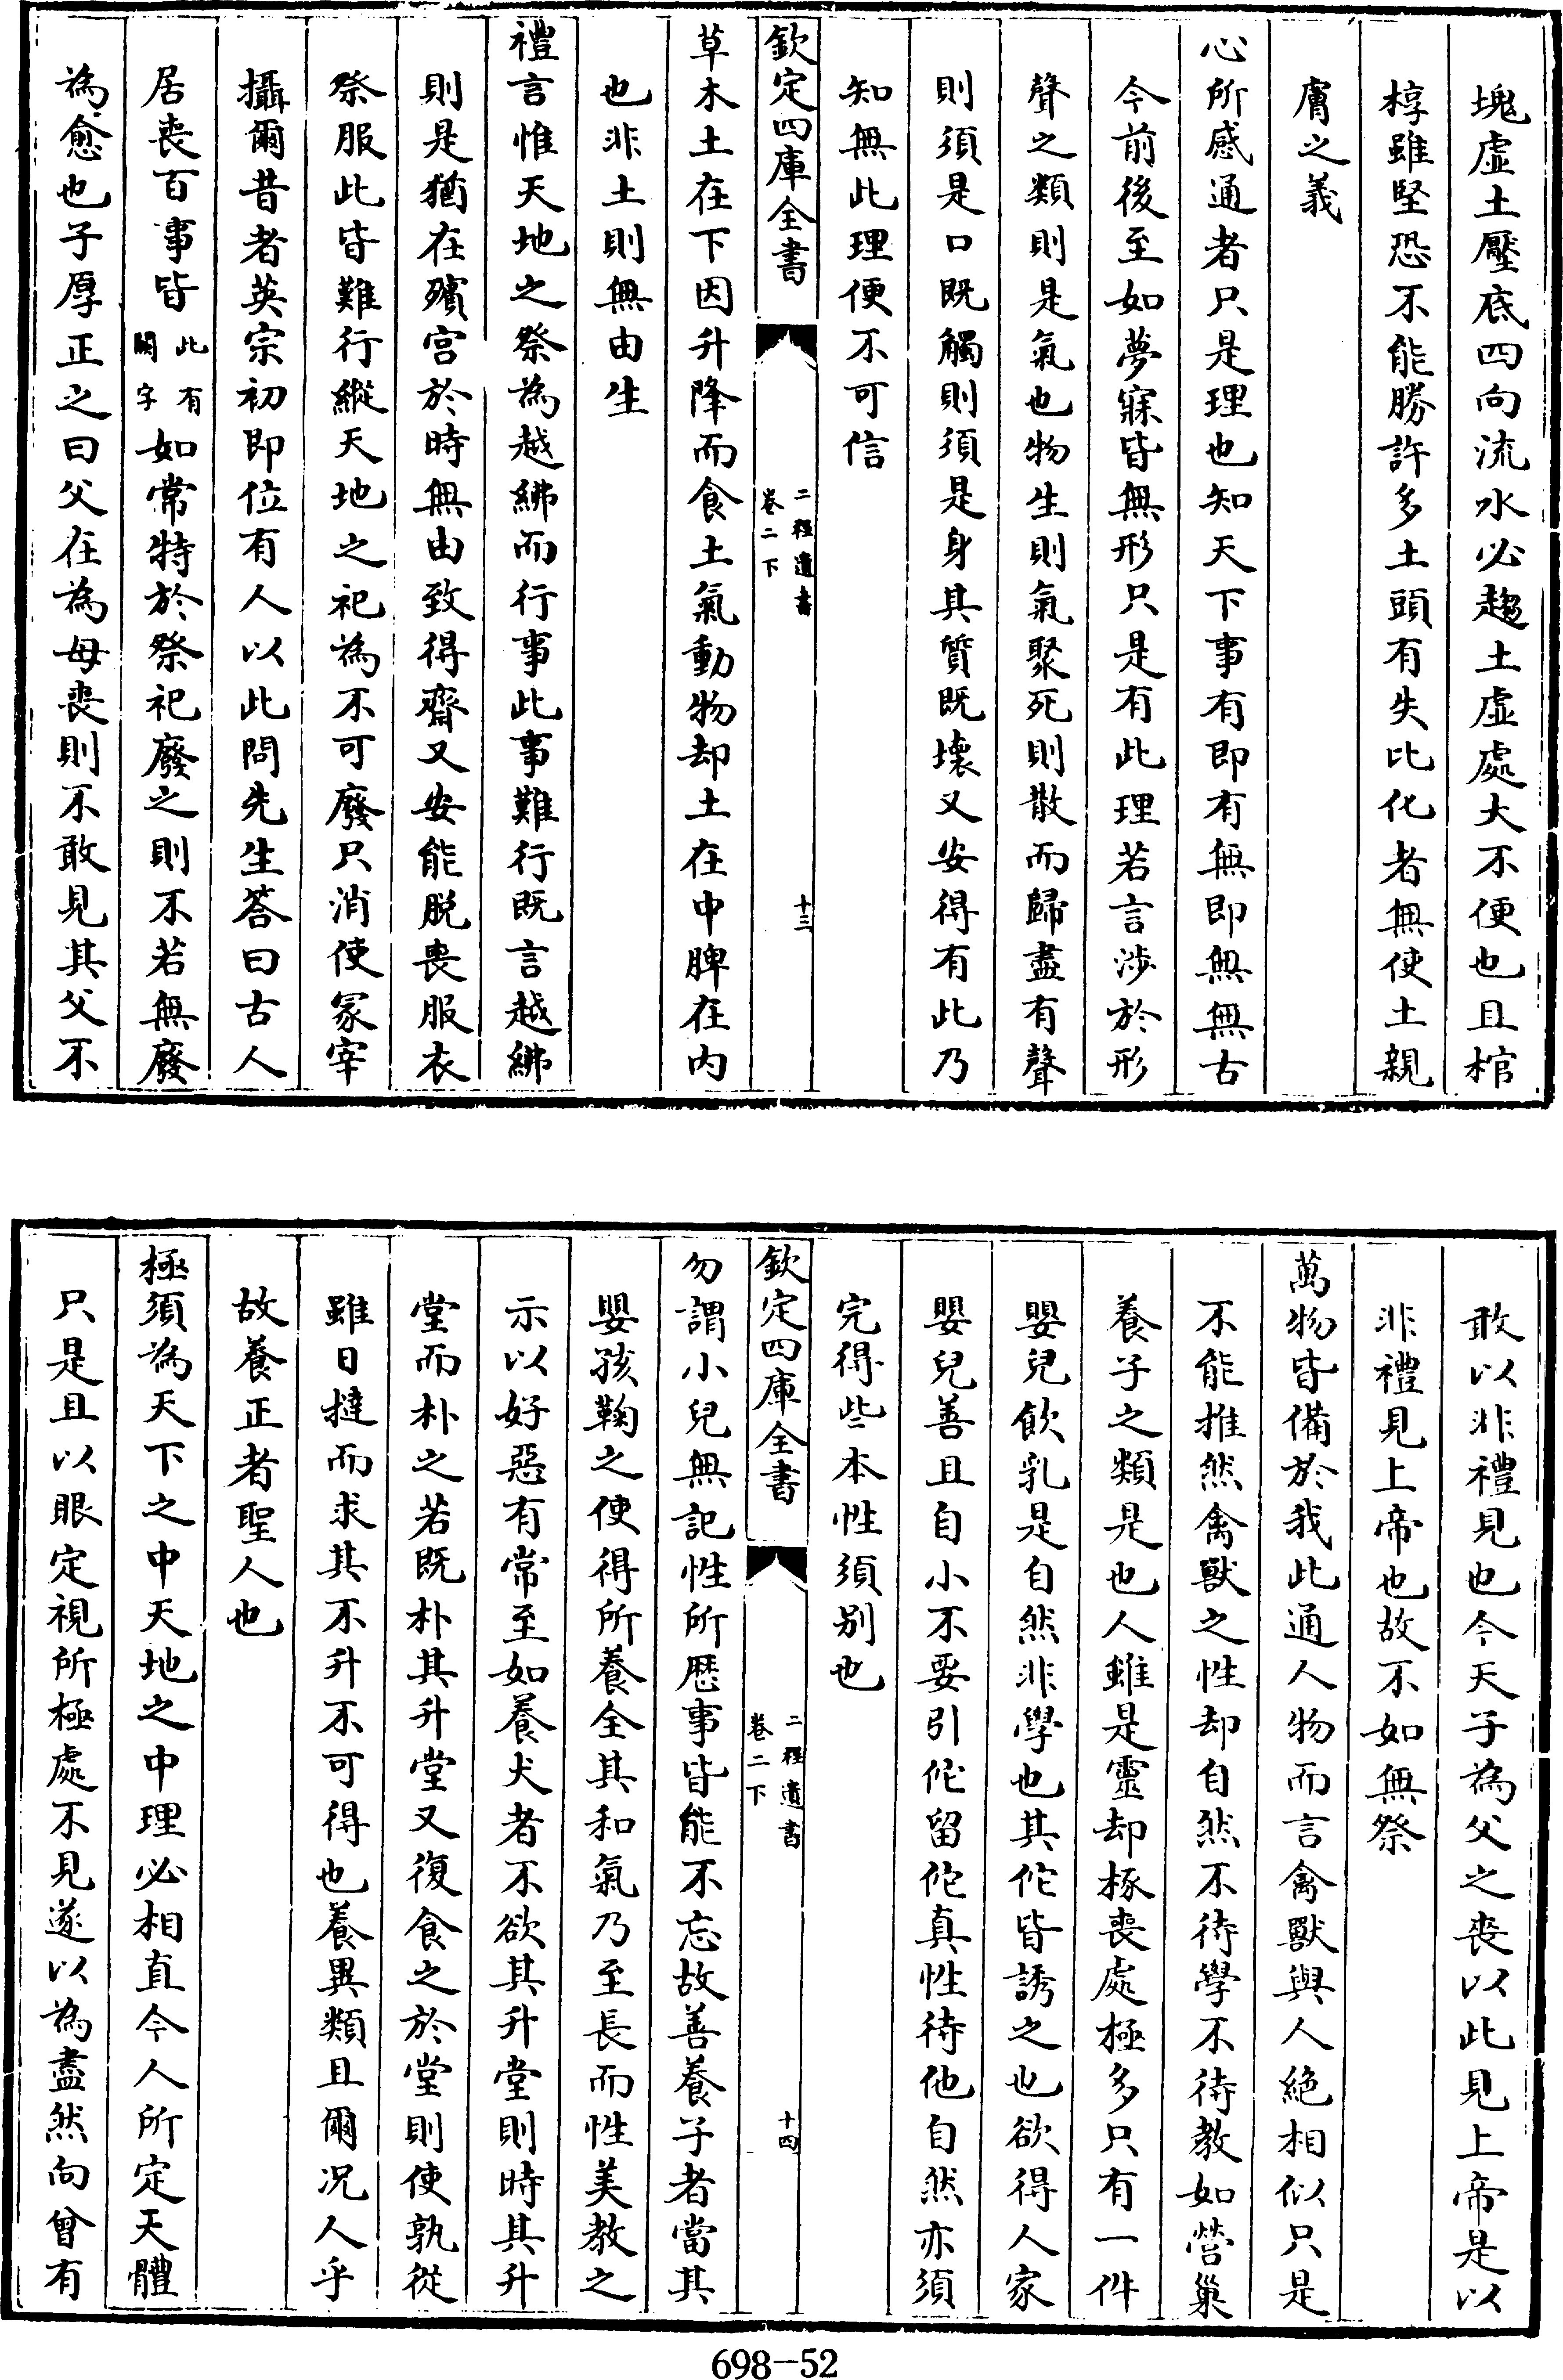 塊虛土壓底四向流水必趨土虛處大不便也且棺
椁雖堅恐不能勝許多土頭有失比化者無使土親
膚之義
心所感通者只是理也知天下事有即有無即無無古
今前後至如夢寐皆無形只是有此理若言涉於形
聲之類則是氣也物生則氣聚死則散而歸盡有聲
則須是口既觸則須是身其質既壞又安得有此乃
知無此理便不可信
欽定四庫全書
二程遺書
卷二下
十三
草木土在下因升降而食土氣動物却土在中脾在内
也非土則無由生
禮言惟天地之祭為越紼而行事此事難行既言越紼
則是猶在殯宮於時無由致得齋又安能脱喪服衣
祭服此皆難行縱天地之祀為不可廢只消使冢宰
攝爾昔者英宗初即位有人以此問先生答曰古人
居喪百事皆此有闕字如常特於祭祀廢之則不若無廢
為愈也子厚正之曰父在為母喪則不敢見其父不
敢以非禮見也今天子為父之喪以此見上帝是以
非禮見上帝也故不如無祭
萬物皆備於我此通人物而言禽獸與人絶相似只是
不能推然禽獸之性却自然不待學不待教如營巢
養子之類是也人雖是靈却椓喪處極多只有一件
嬰兒飲乳是自然非學也其佗皆誘之也欲得人家
嬰兒善且自小不要引佗留佗真性待他自然亦須
完得些本性須别也
欽定四庫全書
二程遺書
卷二下
十四
勿謂小兒無記性所歴事皆能不忘故善養子者當其
嬰孩鞠之使得所養全其和氣乃至長而性美教之
示以好惡有常至如養犬者不欲其升堂則時其升
堂而朴之若既朴其升堂又復食之於堂則使孰從
雖日撻而求其不升不可得也養異類且爾况人乎
故養正者聖人也
極須為天下之中天地之中理必相直今人所定天體
只是且以眼定視所極處不見遂以為盡然向曾有
698-52